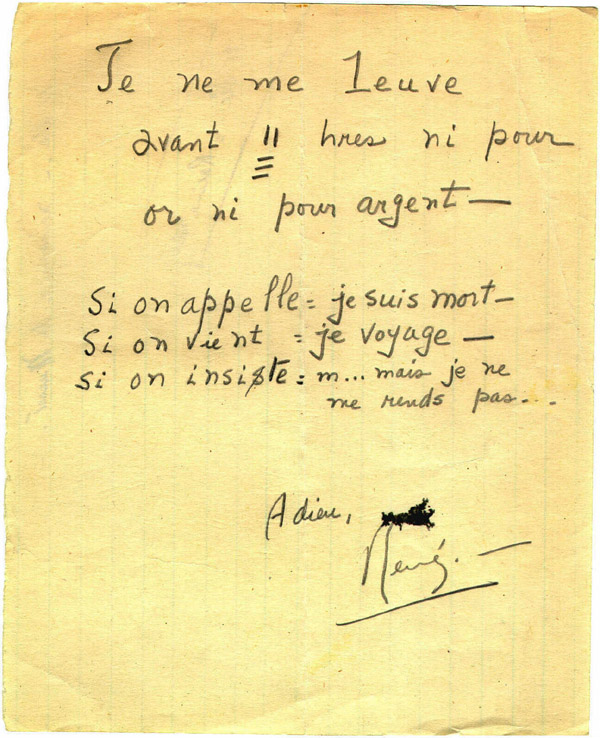 Je ne me leuve
avant 11 hres ni pour
or ni pour argent —
Si on appelle = je suis mort —
Si on vient = je voyage —
Si on insiste = m... mais je ne
me rends pas...
Adieu,
René. —